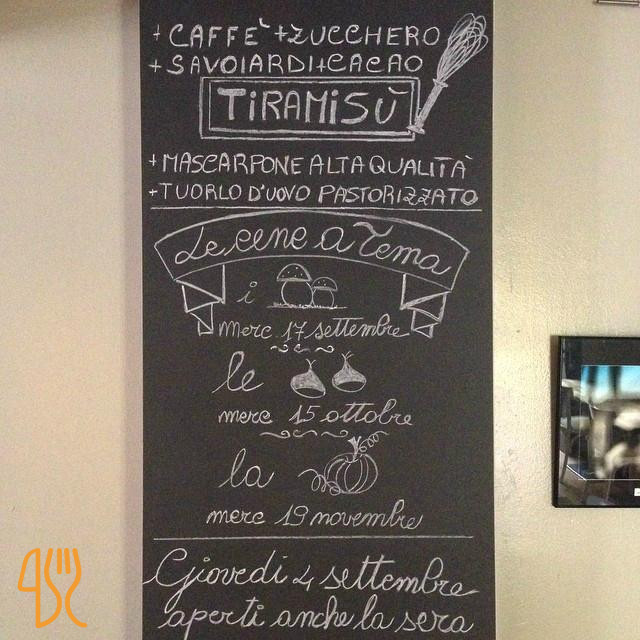 + CAFFÈ +ZUCCHERO
+ SAVOIARDI+CACAO
TIRAMISÙ
+ MASCARPONE ALTA QUALITÀ
+ TUORLO D'UOVO PASTORIZZATO
Le cene a Tema
i
merc 17 settembre
le
merc 15 ottobre
la
merc 19 novembre
Giovedì 4 settembre
aperti anche la sera